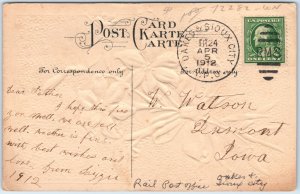 72282 WN
POST
CARD
KARTE
CARTE
OAKES & SIOUX CITY
TR 24
APR
1912
R.P.O.
For Correspondence only
For Address only
ONE CENT
Dear Father
I hope this finds
you well, we are all
well, mother is fine.
with best wishes and
love, from
1912
W. Watson
Iowa
Rail Post office
Oakes &
Sioux City